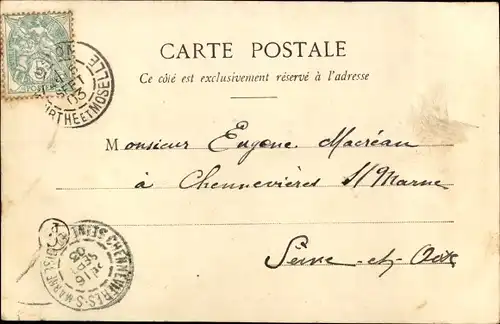 CARTE POSTALE
Ce côté est exclusivement réservé à l'adresse
Monsieur Eugène Macréau
à Chennevières s/Marne
Seine-et-Oise
SEPT
03
MEURTHE ET MOSELLE
CHENNEVIÈRES-S-MARNE
16
SEPT
03